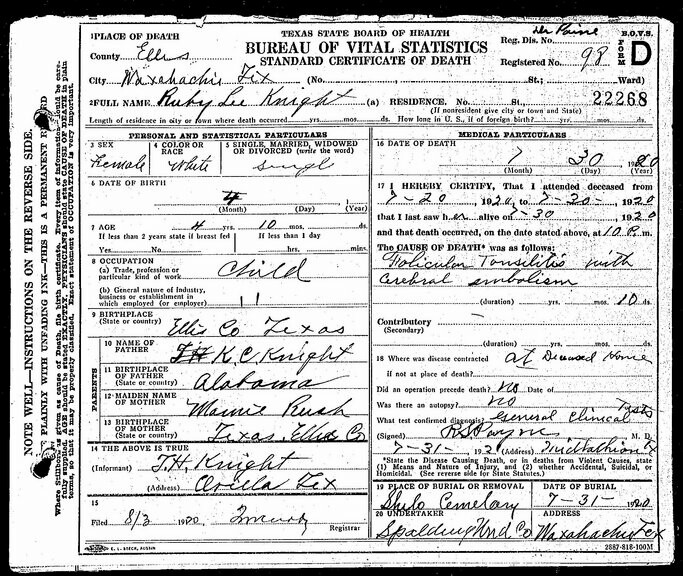 NOTE WELL—INSTRUCTIONS ON THE REVERSE SIDE.
PLAINLY WITH UNFADING INK—THIS IS A PERMANENT RECORD
1PLACE OF DEATH
TEXAS STATE BOARD OF HEALTH
BUREAU OF VITAL STATISTICS
STANDARD CERTIFICATE OF DEATH
Reg. Dis. No.
Registered No. 98
B.O.V.S.
FORM D
County Ellis
City Waxahachie Tex (No. St.; Ward)
2FULL NAME Ruby Lee Knight (a) RESIDENCE. No. St.,
22268
(If nonresident give city or town and State)
Length of residence in city or town where death occurred. yrs. mos. ds. How long in U. S., if of foreign birth? yrs. mos. ds.
PERSONAL AND STATISTICAL PARTICULARS
3 SEX
Female
4 COLOR OR RACE
White
5 SINGLE, MARRIED, WIDOWED OR DIVORCED (write the word)
Single
6 DATE OF BIRTH
(Month) (Day) (Year)
7 AGE 4 yrs. 10 mos. ds.
If less than 2 years state if breast fed If less than 1 day
Yes No hrs. mins.
8 OCCUPATION
(a) Trade, profession or particular kind of work Child
(b) General nature of Industry, business or establishment in which employed (or employer) 11
9 BIRTHPLACE
(State or country) Ellis Co Texas
PARENTS
10 NAME OF FATHER K. C. Knight
11 BIRTHPLACE OF FATHER
(State or country) Alabama
12 MAIDEN NAME OF MOTHER Mamie Rush
13 BIRTHPLACE OF MOTHER
(State or country) Texas, Ellis Co
14 THE ABOVE IS TRUE
(Informant) T. H. Knight
(Address) Tex
15
Filed 8/2 1920 Registrar
MEDICAL PARTICULARS
16 DATE OF DEATH
7 30 1920
(Month) (Day) (Year)
17 I HEREBY CERTIFY, That I attended deceased from
7-20, 1920, to 7-30-, 1920
that I last saw her alive on 7-30, 1920
and that death occurred, on the date stated above, at 10 P. m.
The CAUSE OF DEATH* was as follows:
Folicular Tonsilitis with
Cerebral embolism
(duration) yrs. mos. 10 ds.
Contributory —
(Secondary)
(duration) yrs. mos. ds.
18 Where was disease contracted At Deceased Home
if not at place of death?
Did an operation precede death? No Date of
Was there an autopsy? No
What test confirmed diagnosis? General Clinical Tests
(Signed) R S Payne M. D.
7-31-, 192 (Address)
*State the Disease Causing Death, or in deaths from Violent Causes, state
(1) Means and Nature of Injury, and (2) whether Accidental, Suicidal, or
Homicidal. (See reverse side for State Statutes).
19 PLACE OF BURIAL OR REMOVAL
Shilo Cemetary
DATE OF BURIAL
7-31- 1920
20 UNDERTAKER
Spalding Und Co
ADDRESS
Waxahachie Tex
E. L. STECK, AUSTIN
2887-818-100M